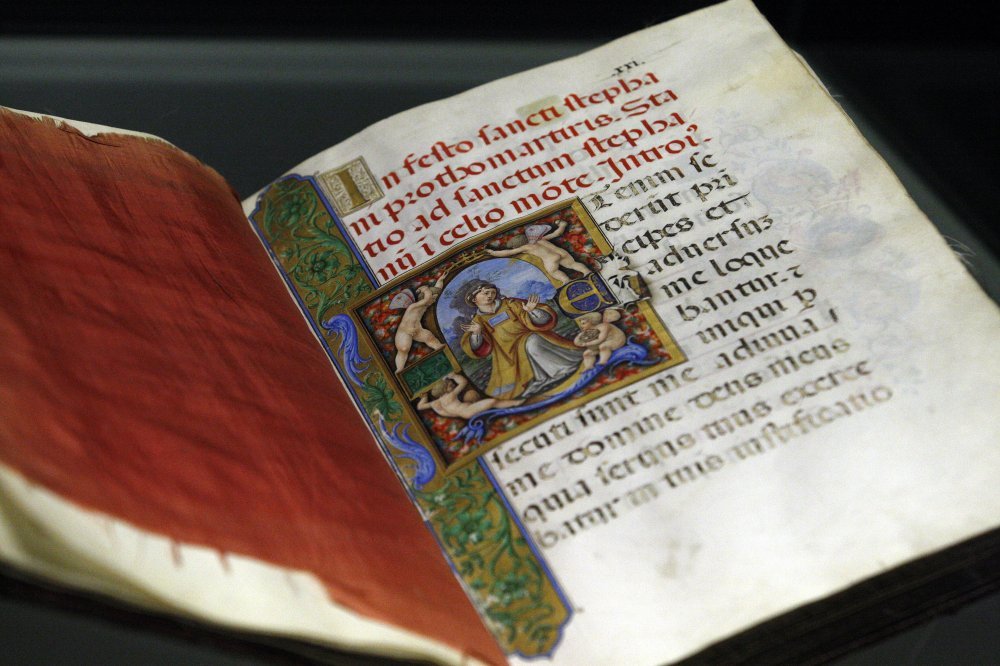 .xxi.
In festo sancti stepha
ni prothomartiris. Sta
tio ad sanctum stepha,
nū i celio mōte. Introi,
Etenim se
derūt pri
cipes et
aduersuz
me loque
bantur. τ
iniqui p
secuti sunt me adiuua
me domine deus meus
quia seruus tuus exerce
batur in tuis iustificatio